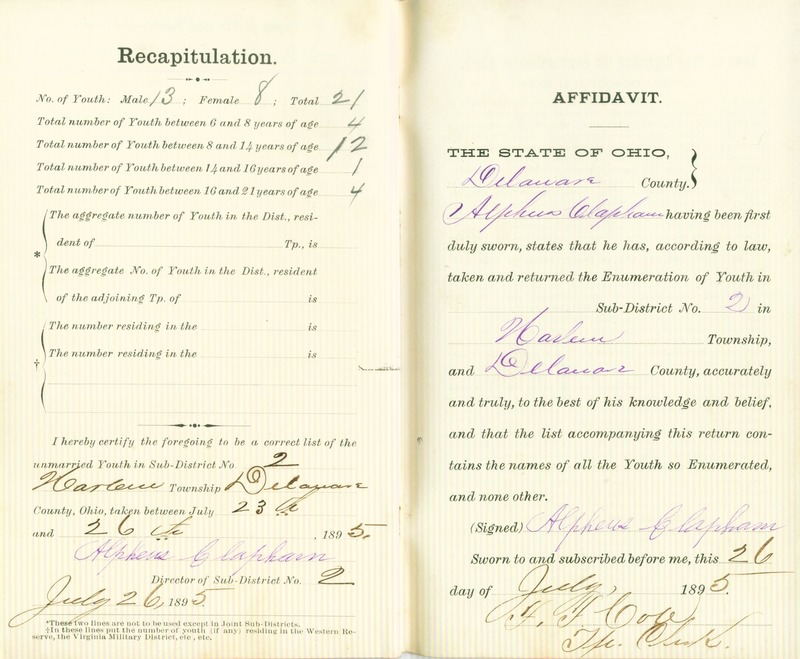 Recapitulation.
No. of Youth: Male 13; Female 8; Total 21
Total number of Youth between 6 and 8 years of age 4
Total number of Youth between 8 and 14 years of age 12
Total number of Youth between 14 and 16 years of age 1
Total number of Youth between 16 and 21 years of age 4
The aggregate number of Youth in the Dist., resi-
dent of Tp., is
*
The aggregate No. of Youth in the Dist., resident
of the adjoining Tp. of is
The number residing in the is
The number residing in the is
†
I hereby certify the foregoing to be a correct list of the
unmarried Youth in Sub-District No. 2
Harlem Township Delaware
County, Ohio, taken between July 23th
and 26th, 1895.
Alpheus Clapham
Director of Sub-District No. 2
July 26, 1895.
*These two lines are not to be used except in Joint Sub-Districts.
†In these lines put the number of youth (if any) residing in the Western Re-
serve, the Virginia Military District, etc., etc.
AFFIDAVIT.
THE STATE OF OHIO,
Delaware County.
Alpheus Clapham having been first
duly sworn, states that he has, according to law,
taken and returned the Enumeration of Youth in
Sub-District No. 2 in
Harlem Township,
and Delawar County, accurately
and truly, to the best of his knowledge and belief,
and that the list accompanying this return con-
tains the names of all the Youth so Enumerated,
and none other.
(Signed) Alpheus Clapham
Sworn to and subscribed before me, this 26
day of July, 1895.
F. F. Cow
Tp. Clerk.